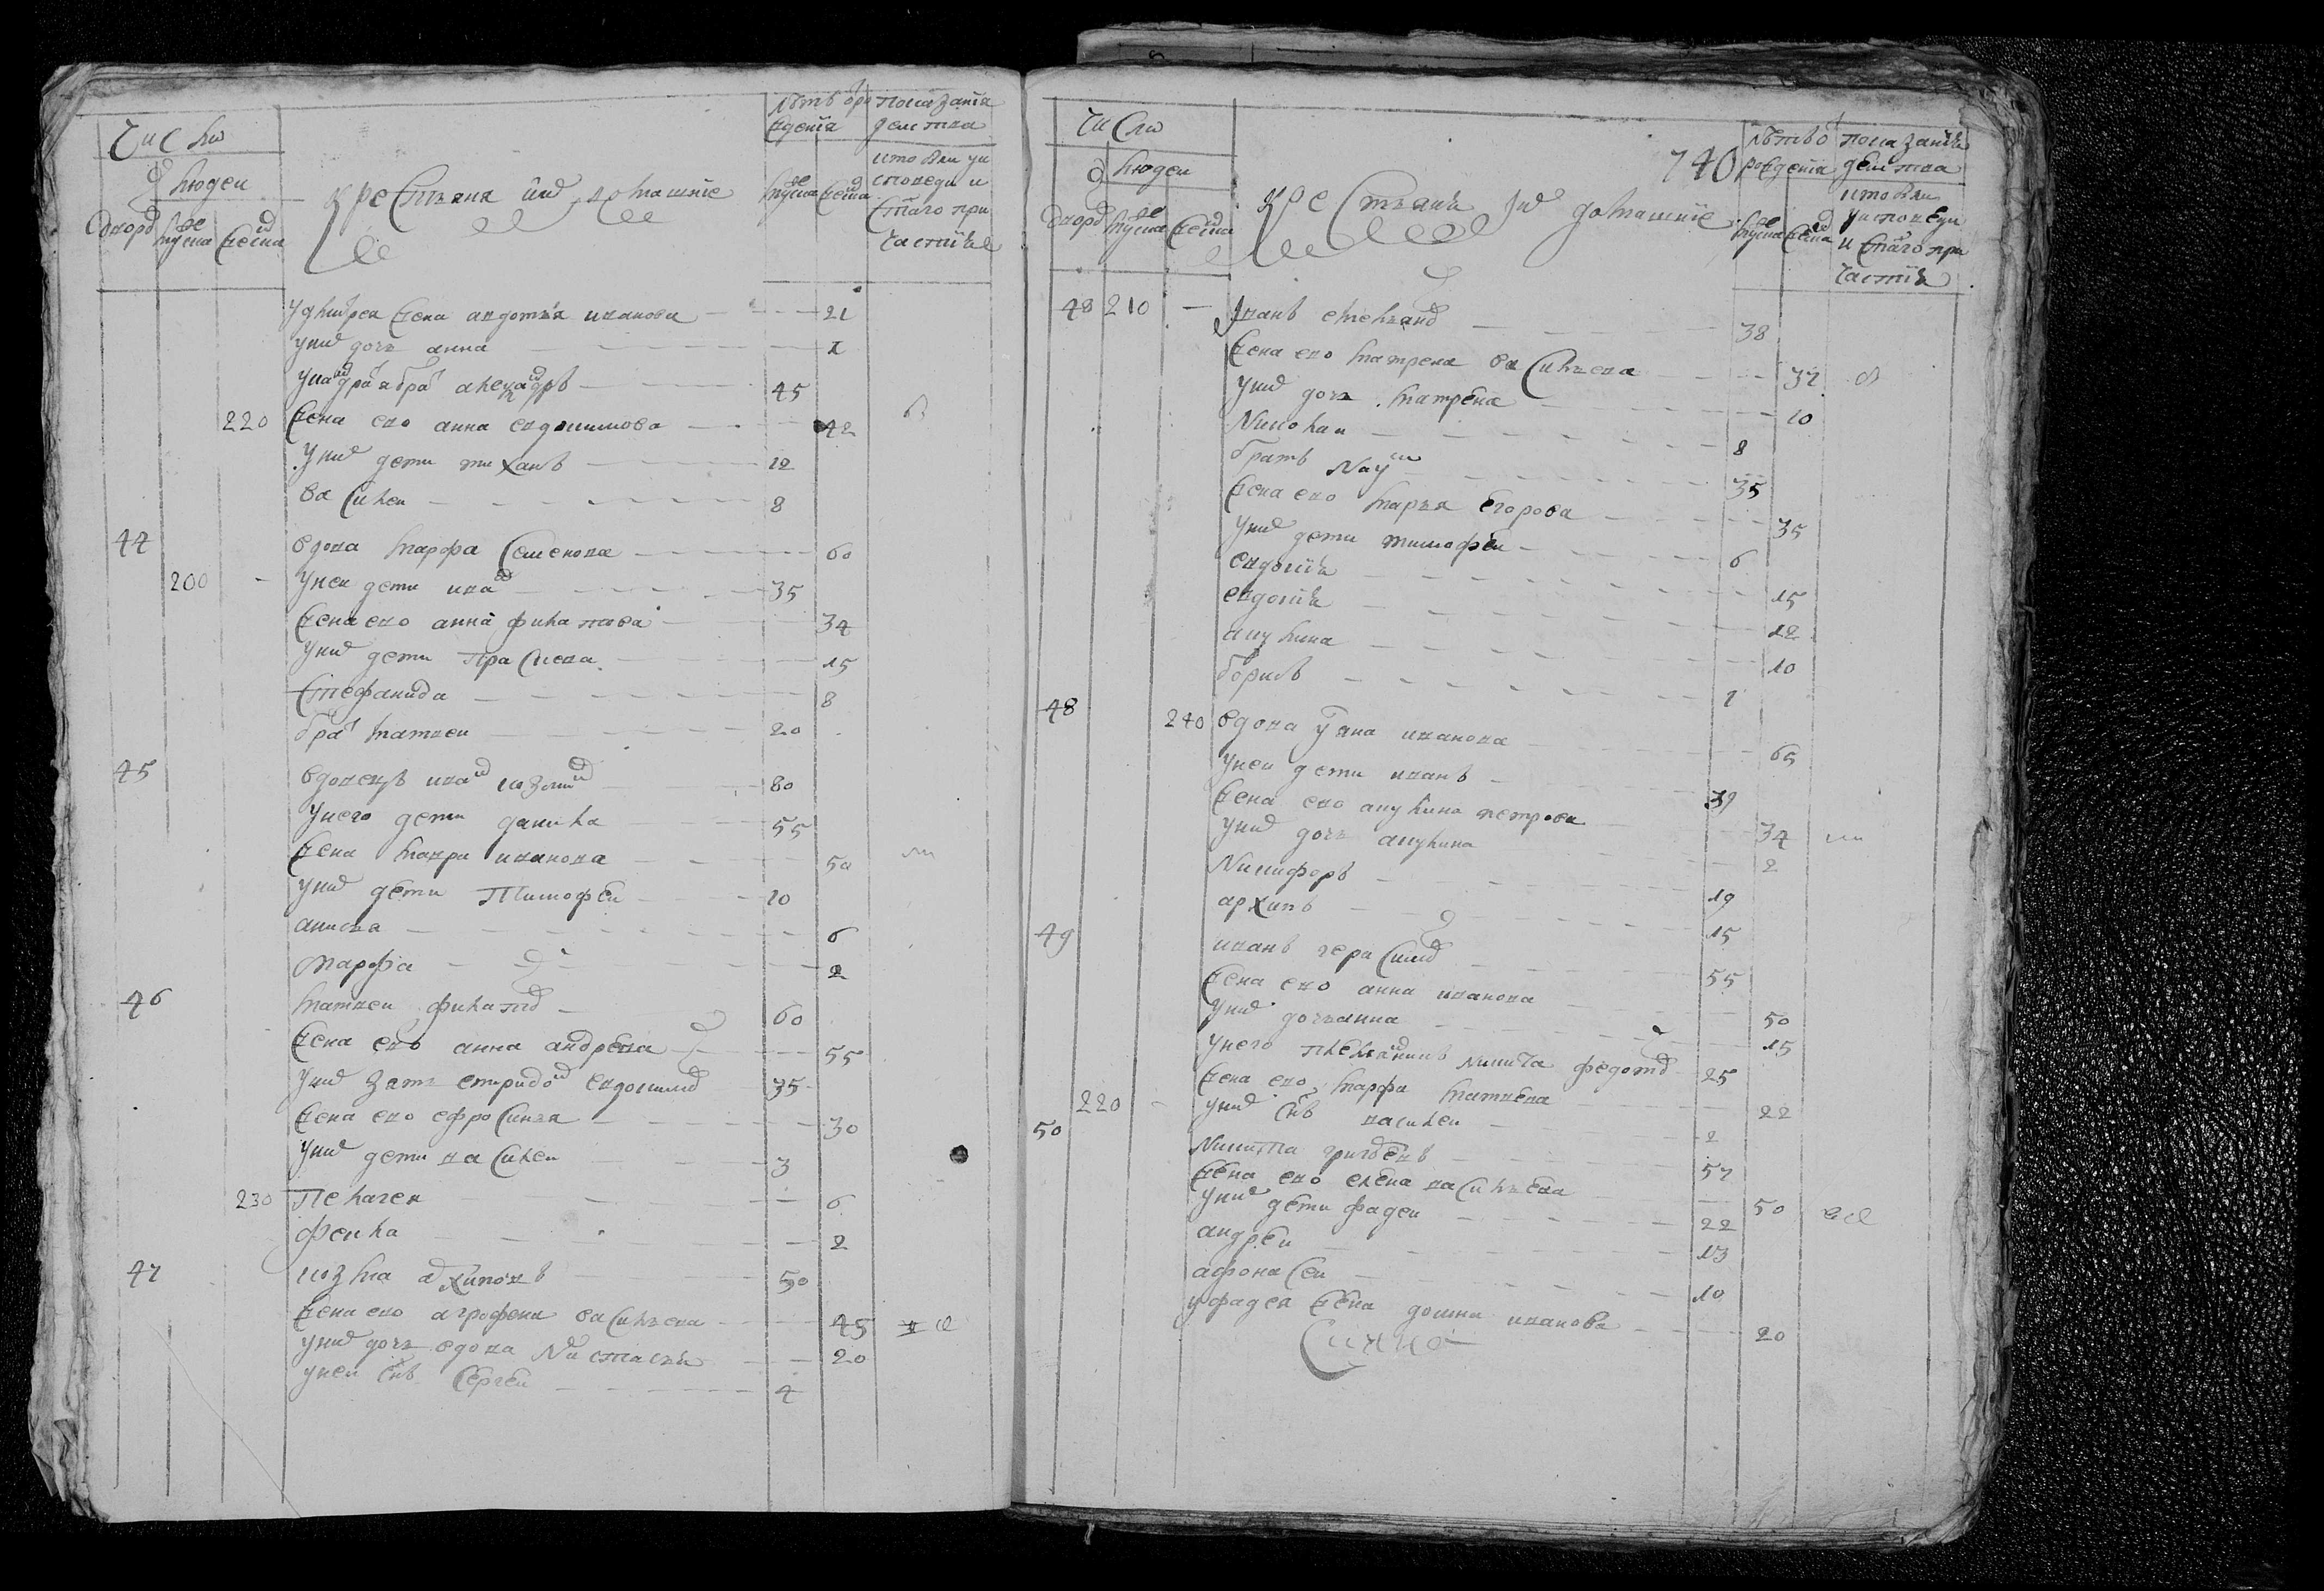 Число
людеи
дворо мужеска женска
крестьяня и их домашние
лѣтъ от рождения
мужеска женска
показания действа
кто был у исповеди и святаго причастия
у дмитрея жена авдотья иванова 21
у них дочь анна 1
у андрея брат александръ 45
220 жена ево анна евдокимова 42
у них дети тиханъ 12
василеи 8
44 вдова марфа семенова 60
200 у неи дети иван 35
жена ево анна филатова 34
у них дети прасковя 15
стефанида 8
брат матвеи 20
45 вдовецъ иван козмин 80
у него дети данила 55
жена мавра иванова 50
у них дети тимофеи 10
анисья 6
марфа 2
46 матвеи филатов 60
жена ево анна андреева 55
у них зять спиридон евдокимов 35
жена ево ефросинья 30
у них дети василеи 3
230 пелагея 6
фекла 2
47 козма архиповъ 50
жена ево аграфена васильева 45
у них дочь вдова настасья 20
у неи сынъ сергеи 4
Число
людеи
дворо мужеска женска
740
крестьяня и их домашние
лѣтъ от рождения
мужеска женска
показания действа
кто был у исповеди и святаго причастия
48 210 иванъ емельянов 38
жена ево матрена васильева 37
у них дочь матрена 10
николаи 8
братъ наум 35
жена ево марья егорова 35
у них дети тимофеи 6
евдокия 15
евдокия 12
акулина 10
борисъ 1
48 240 вдова ульяна иванова 65
у неи дети иванъ 39
жена ево акулина петрова 34
у них дочь акулина 2
никифоръ 19
архипъ 15
49 иванъ герасимов 55
жена ево анна иванова 50
у них дочь анна 15
у него племянникъ никита федотов 25
жена ево марфа матвеева 22
220 у них сынъ василеи 2
50 никита григоревъ 57
жена ево елена васильева 50
у них дети фадеи 22
андреи 13
афонасеи 10
у фадея жена домна иванова 20